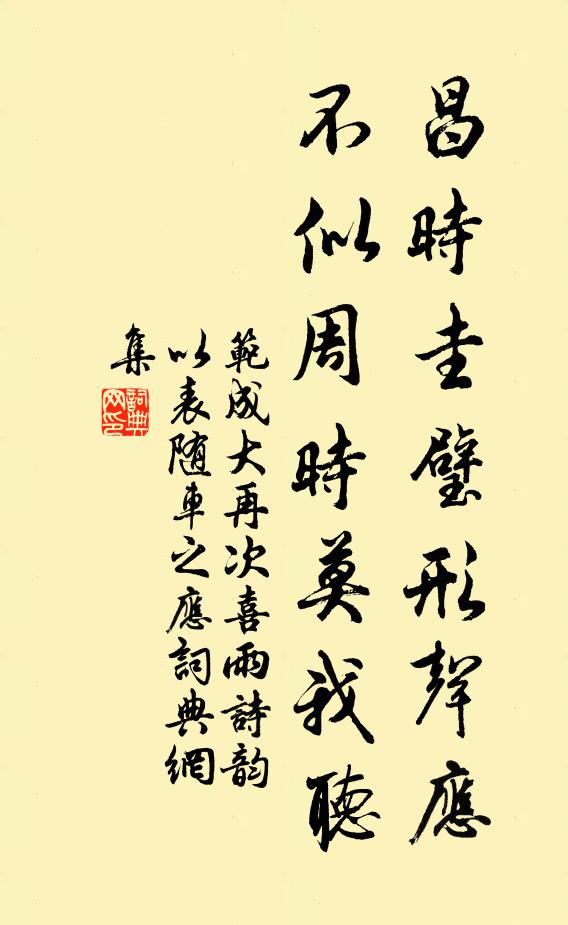 昌時圭璧形聲應
不似周時莫我聽
範成大再次喜雨詩韵
以表随車之應詞典網
集
詞典网印